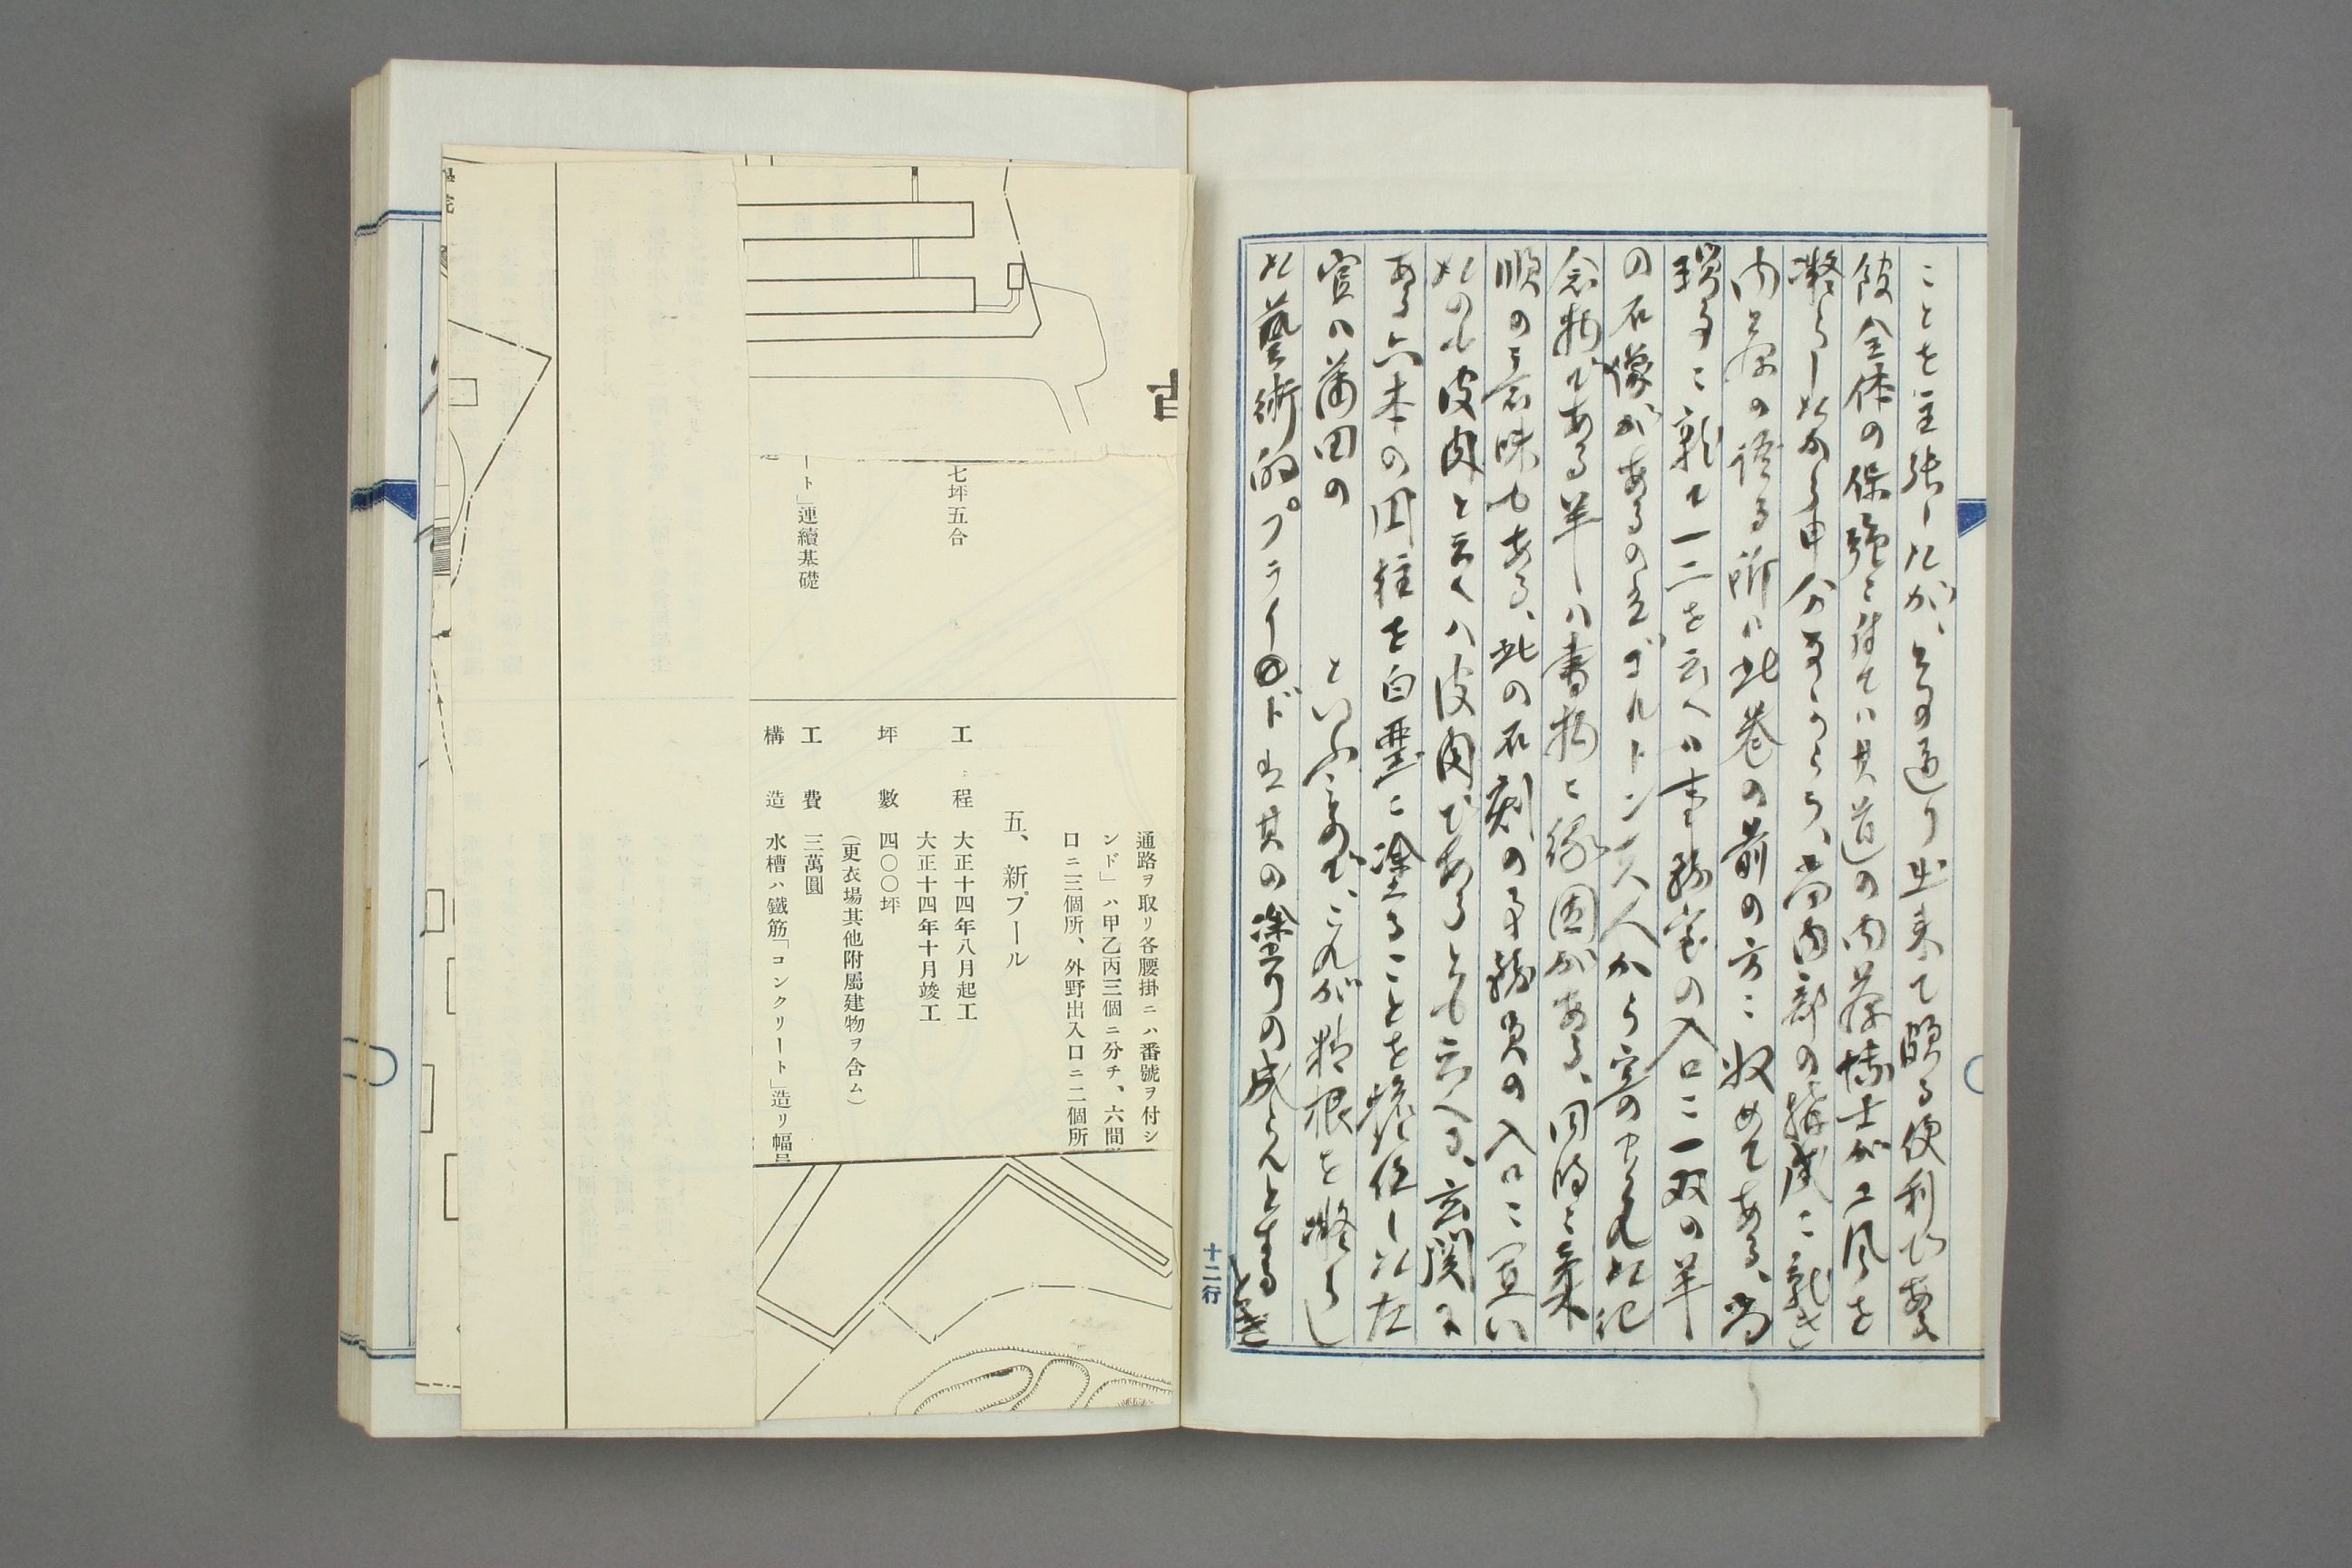 ことを主張したが、其の通り出来て頗る便利である
館全体の保強に付ては其道の内藤博士が工風を
凝らしたから申分なからう、尚内部の構成に就き
内藤の誇る所は此巻の前の方に収めてある、尚
瑣事に就て一二を云へば事務室の入口に一双の羊
の石像があるの之ゴルトン夫人から寄せられた記
念物である羊は書物に縁因がある、同時に柔
順の意味もある、此の石刻の事務員の入口に置い
たのも皮肉と云へば皮肉であるとも云へる、玄関に
ある六本の円柱を白堊に塗ることを擔任した左
官は蒲田の
といふ事で、これが精根を凝らし
た藝術的プライド
は其の塗りの成らんとするとき
十二行
七坪五合
ート」連續基礎
通路ヲ取リ各腰掛ニハ番號ヲ付シ
ンド」ハ甲乙丙三個ニ分チ、六間
口ニ三個所、外野出入口ニ二個所
五、新プール
工程 大正十四年八月起工
大正十四年十月竣工
坪數 四〇〇坪
(更衣場其他附屬建物ヲ含ム)
工費 三萬圓
構造 水槽ハ鐵筋「コンクリート」造リ幅